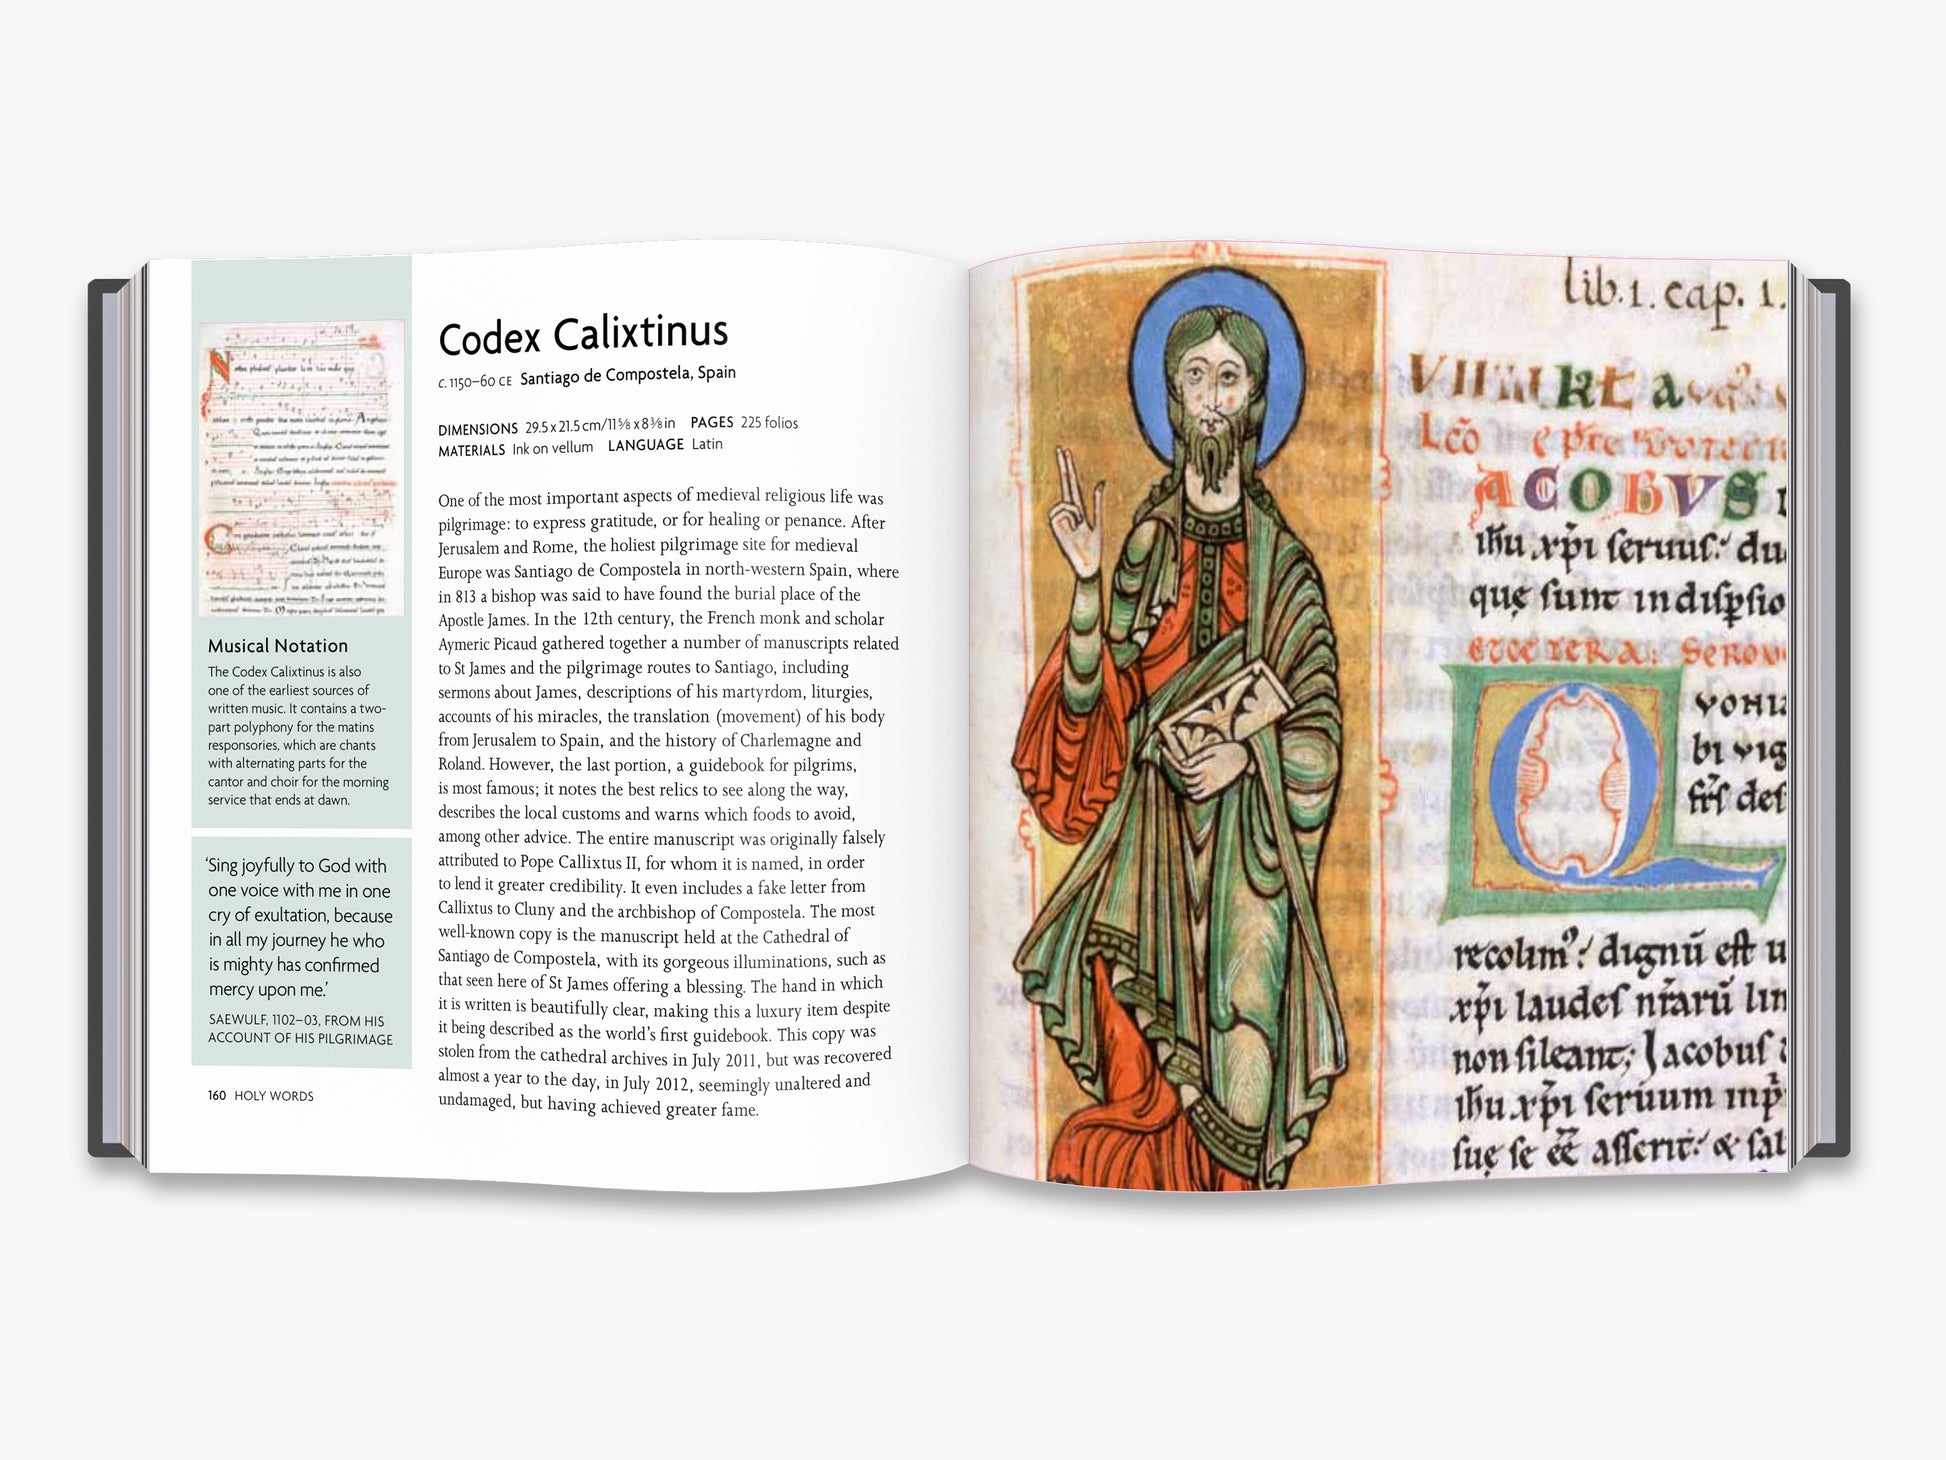 Codex Calixtinus
c. 1150–60 CE Santiago de Compostela, Spain
DIMENSIONS 29.5 x 21.5 cm/11⅝ x 8⅜ in PAGES 225 folios
MATERIALS Ink on vellum LANGUAGE Latin
One of the most important aspects of medieval religious life was
pilgrimage: to express gratitude, or for healing or penance. After
Jerusalem and Rome, the holiest pilgrimage site for medieval
Europe was Santiago de Compostela in north-western Spain, where
in 813 a bishop was said to have found the burial place of the
Apostle James. In the 12th century, the French monk and scholar
Aymeric Picaud gathered together a number of manuscripts related
to St James and the pilgrimage routes to Santiago, including
sermons about James, descriptions of his martyrdom, liturgies,
accounts of his miracles, the translation (movement) of his body
from Jerusalem to Spain, and the history of Charlemagne and
Roland. However, the last portion, a guidebook for pilgrims,
is most famous; it notes the best relics to see along the way,
describes the local customs and warns which foods to avoid,
among other advice. The entire manuscript was originally falsely
attributed to Pope Callixtus II, for whom it is named, in order
to lend it greater credibility. It even includes a fake letter from
Callixtus to Cluny and the archbishop of Compostela. The most
well-known copy is the manuscript held at the Cathedral of
Santiago de Compostela, with its gorgeous illuminations, such as
that seen here of St James offering a blessing. The hand in which
it is written is beautifully clear, making this a luxury item despite
it being described as the world's first guidebook. This copy was
stolen from the cathedral archives in July 2011, but was recovered
almost a year to the day, in July 2012, seemingly unaltered and
undamaged, but having achieved greater fame.
Musical Notation
The Codex Calixtinus is also
one of the earliest sources of
written music. It contains a two-
part polyphony for the matins
responsories, which are chants
with alternating parts for the
cantor and choir for the morning
service that ends at dawn.
'Sing joyfully to God with
one voice with me in one
cry of exultation, because
in all my journey he who
is mighty has confirmed
mercy upon me.'
SAEWULF, 1102–03, FROM HIS
ACCOUNT OF HIS PILGRIMAGE
160 HOLY WORDS
lib. 1. cap. 1.
ACOBVS
ihu xpi seruus: du
quę sunt in dispsio
ETCETERA:
bi vig
recolim? dignū est u
xpi laudes nrarū lin
non sileant; Jacobus
ihu xpi seruum
suę se eē asserit: & sal